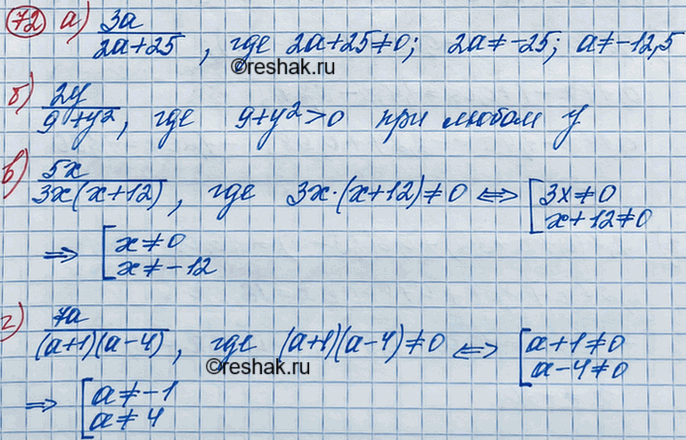 72 а) 3a
2a+25 , где 2a+25≠0; 2a≠-25; a≠-12,5
©reshak.ru
б) 2y
9+y² , где 9+y²>0 при любом y
в) 5x
3x(x+12) , где 3x·(x+12)≠0 ⟺ [ 3x≠0
x+12≠0
⟹ [ x≠0
x≠-12
г) 7a
(a+1)(a-4) , где (a+1)(a-4)≠0 ⟺ [ a+1≠0
a-4≠0
©reshak.ru
⟹ [ a≠-1
a≠4